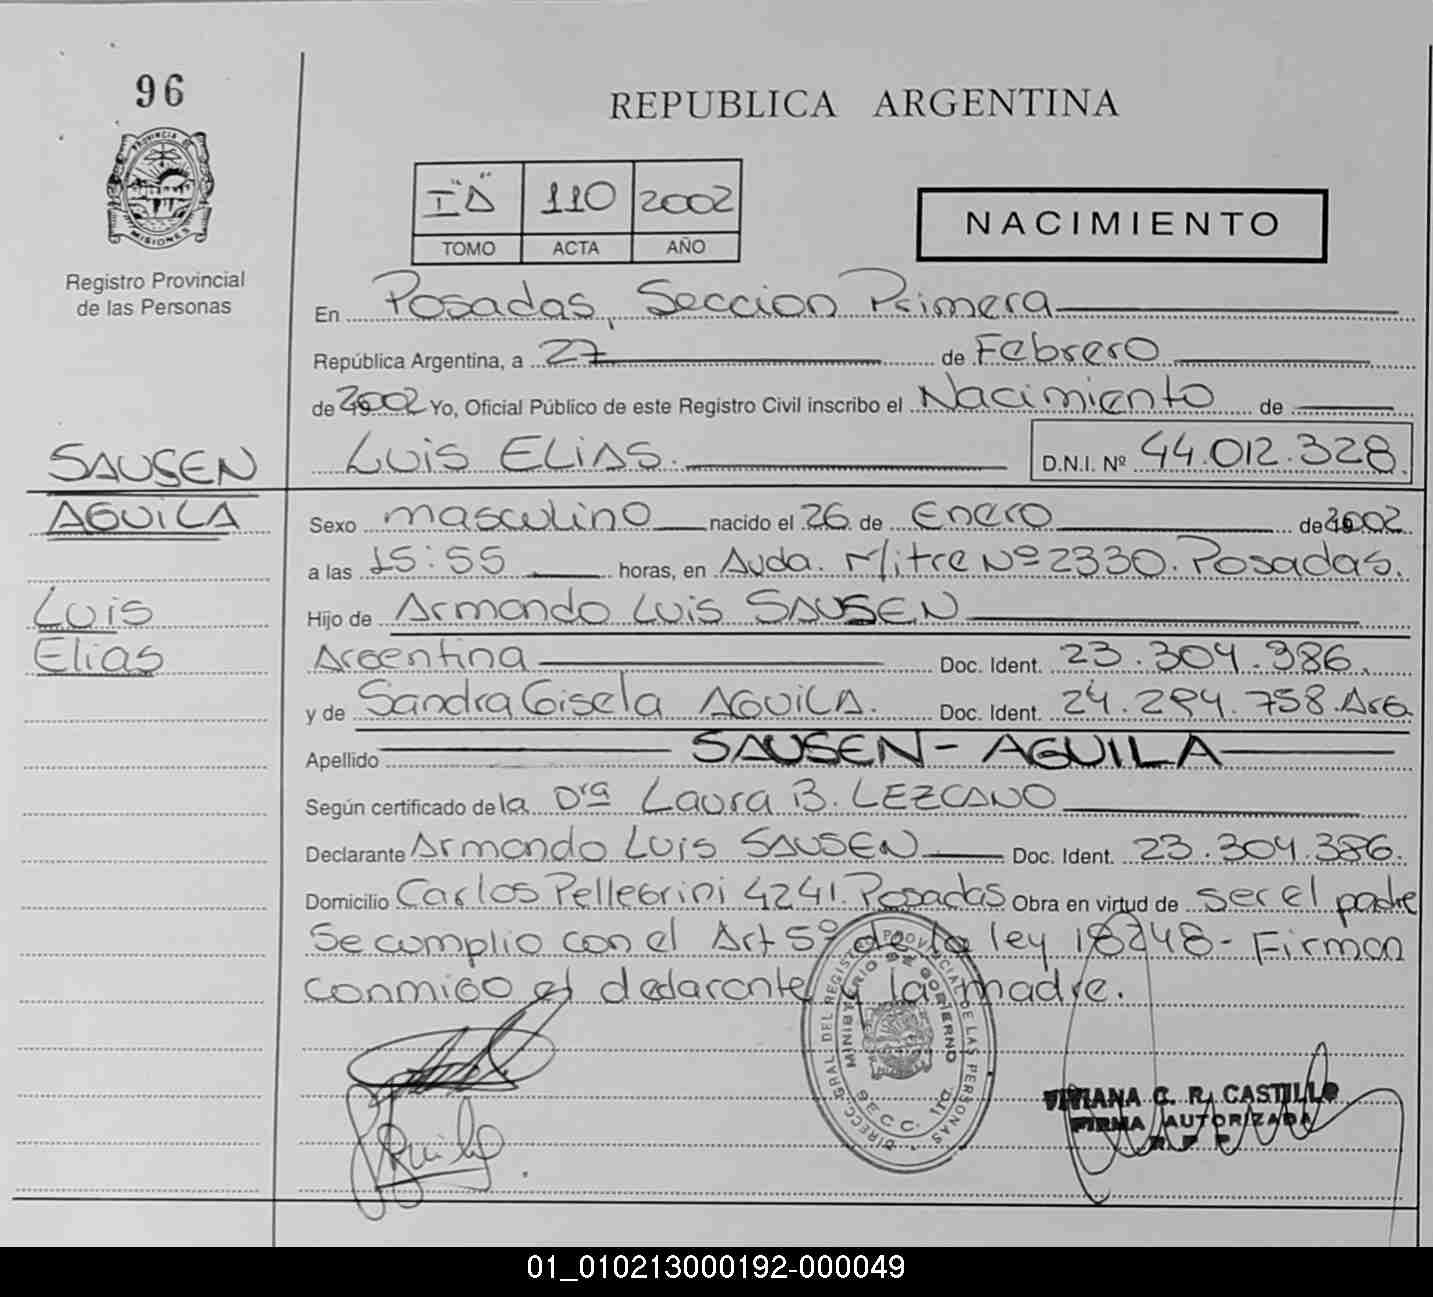 96
REPUBLICA ARGENTINA
PROVINCIA DE
MISIONES
Registro Provincial
de las Personas
I "D" 110 2002
TOMO ACTA AÑO
NACIMIENTO
En Posadas, Seccion Primera
República Argentina, a 27 de Febrero
de 2002 Yo, Oficial Público de este Registro Civil inscribo el Nacimiento de
Luis ELIAS. D.N.I. Nº 44.012.328.
SAUSEN
AGUILA
Luis
Elias
Sexo masculino nacido el 26 de Enero de 2002
a las 15:55 horas, en Avda. Mitre Nº 2330. Posadas.
Hijo de Armando Luis SAUSEN
Argentina Doc. Ident. 23.304.386.
y de Sandra Gisela AGUILA. Doc. Ident. 24.294.758. Arg
Apellido SAUSEN - AGUILA
Según certificado de la Dra Laura B. LEZCANO
Declarante Armando Luis SAUSEN Doc. Ident. 23.304.386.
Domicilio Carlos Pellegrini 4241. Posadas Obra en virtud de ser el padre
Se cumplio con el Art 5º de la ley 18248 - Firman
conmigo el declarante y la madre.
DIRECC. GRAL DEL REGISTRO PROVINCIAL DE LAS PERSONAS
MINISTERIO DE GOBIERNO
SECC. 1ra.
VIVIANA C. R. CASTILLO
FIRMA AUTORIZADA
R. P. P.
01_010213000192-000049